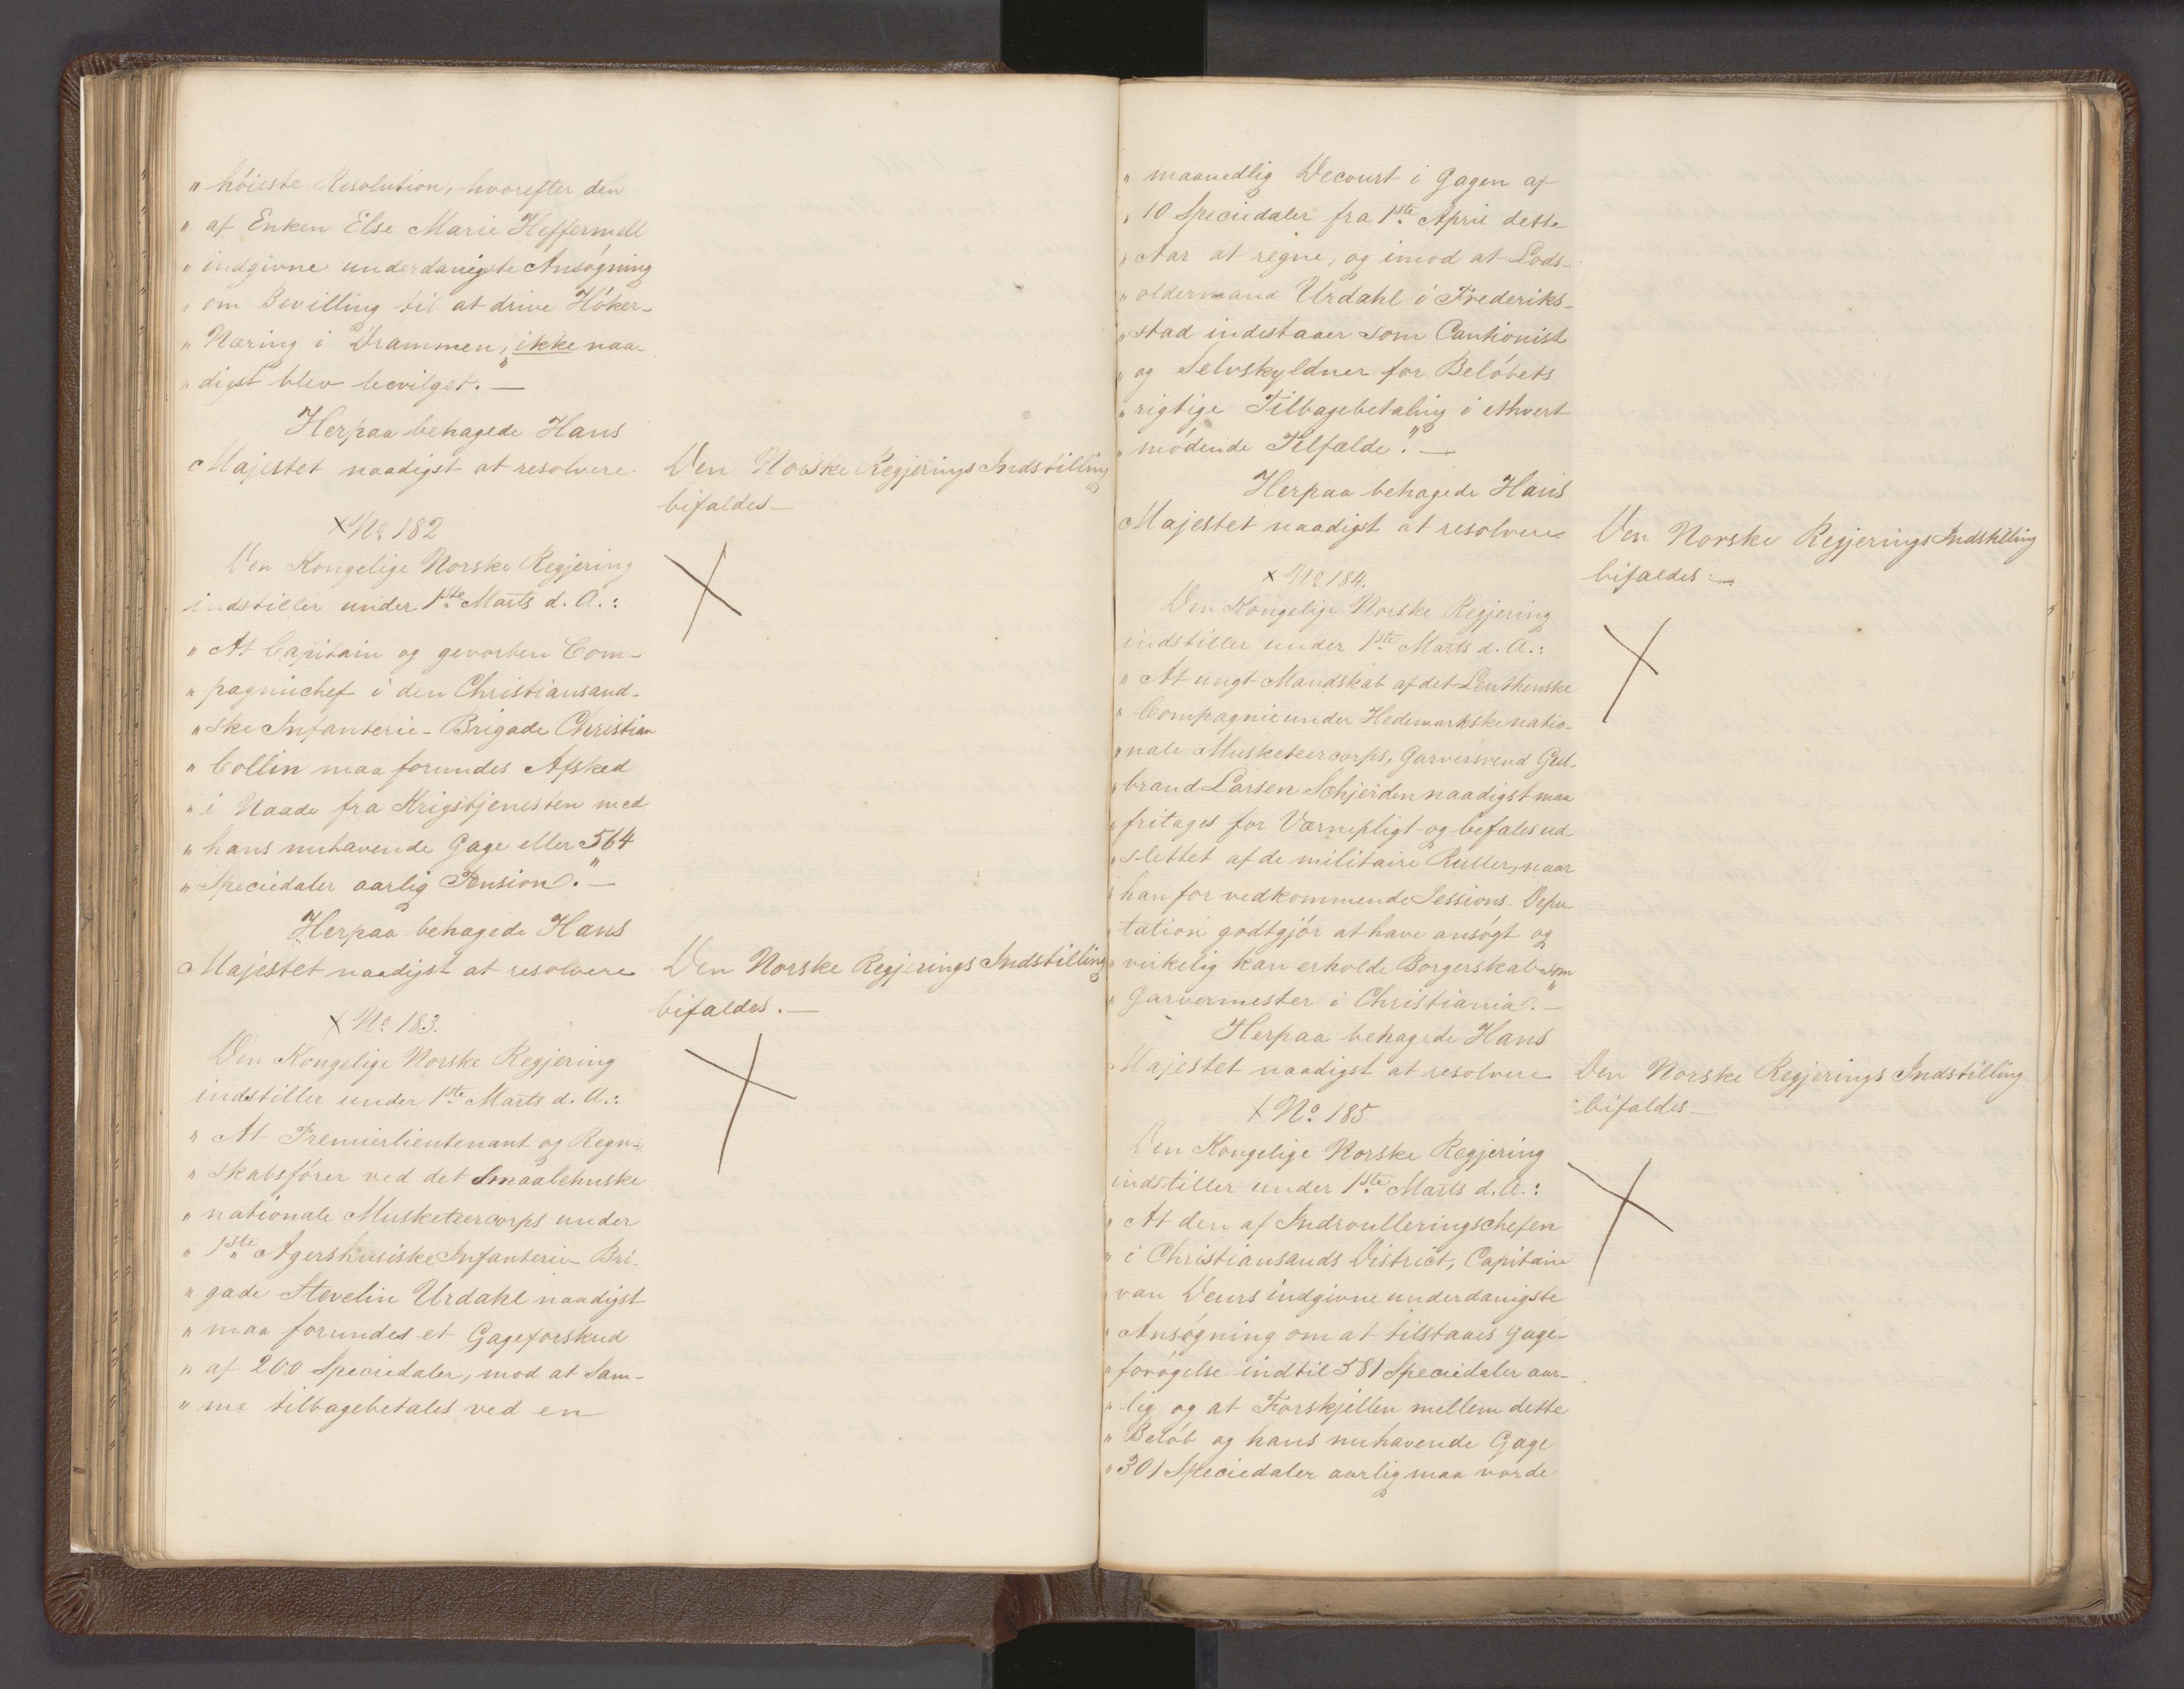 " höieste Resolution, hvorefter den
" af Enken Else Marie Heffermehl
" indgivne underdanigste Ansøgning
" om Bevilling til at drive Höker-
" Næring i Drammen, ikke naa-
" digst blev bevilget." —
Herpaa behagede Hans
Majestet naadigst at resolvere
Den Norske Regjerings Indstilling
bifaldes —
× No 182
Den Kongelige Norske Regjering
indstiller under 1ste Marts d. A.:
" At Capitain og gevorben Com-
" pagniechef i den Christiansand-
" ske Infanterie-Brigade Christian
" Collin maa forundes Afsked
" i Naade fra Krigstjenesten med
" hans nuhavende Gage eller 564
" Speciedaler aarlig Pension." —
Herpaa behagede Hans
Majestet naadigst at resolvere
Den Norske Regjerings Indstilling
bifaldes. —
× No 183.
Den Kongelige Norske Regjering
indstiller under 1ste Marts d. A.:
" At Premierlieutenant og Regn-
" skabsfører ved det Smaalehnske
" nationale Musketeercorps under
" 1ste Agershusiske Infanterie-Bri-
" gade Stevelin Urdahl naadigst
" maa forundes et Gageforskud
" af 200 Speciedaler, mod at Sam-
" me tilbagebetales ved en
" maanedlig Decourt i Gagen af
" 10 Speciedaler fra 1ste April dette
" Aar at regne, og imod at Lods-
" oldermand Urdahl i Frederiks-
" stad indestaaer som Cautionist
" og Selvskyldner for Beløbets
" rigtige Tilbagebetaling i ethvert
" mødende Tilfælde." —
Herpaa behagede Hans
Majestet naadigst at resolvere
Den Norske Regjerings Indstilling
bifaldes —
× No 184.
Den Kongelige Norske Regjering
indstiller under 1ste Marts d. A.:
" At ungt Mandskab af det Leuthenske
" Compagnie under Hedemarkske natio-
" nale Musketeercorps, Garversvend Gul-
" brand Larsen Schjerden naadigst maa
" fritages for Værnepligt og befales ud-
" slettet af de militaire Ruller, naar
" han for vedkommende Sessions-Depu-
" tation godtgjør at have ansøgt og
" virkelig kan erholde Borgerskab som
" Garvermester i Christiania." —
Herpaa behagede Hans
Majestet naadigst at resolvere
Den Norske Regjerings Indstilling
bifaldes —
× No 185
Den Kongelige Norske Regjering
indstiller under 1ste Marts d. A.:
" At den af Indroulleringschefen
" i Christiansands District, Capitain
" van Deurs indgivne underdanigste
" Ansøgning om at tilstaaes Gage-
" forøgelse indtil 581 Speciedaler aar-
" lig og at Forskjellen mellem dette
" Beløb og hans nuhavende Gage
" 301 Speciedaler aarlig maa vorde